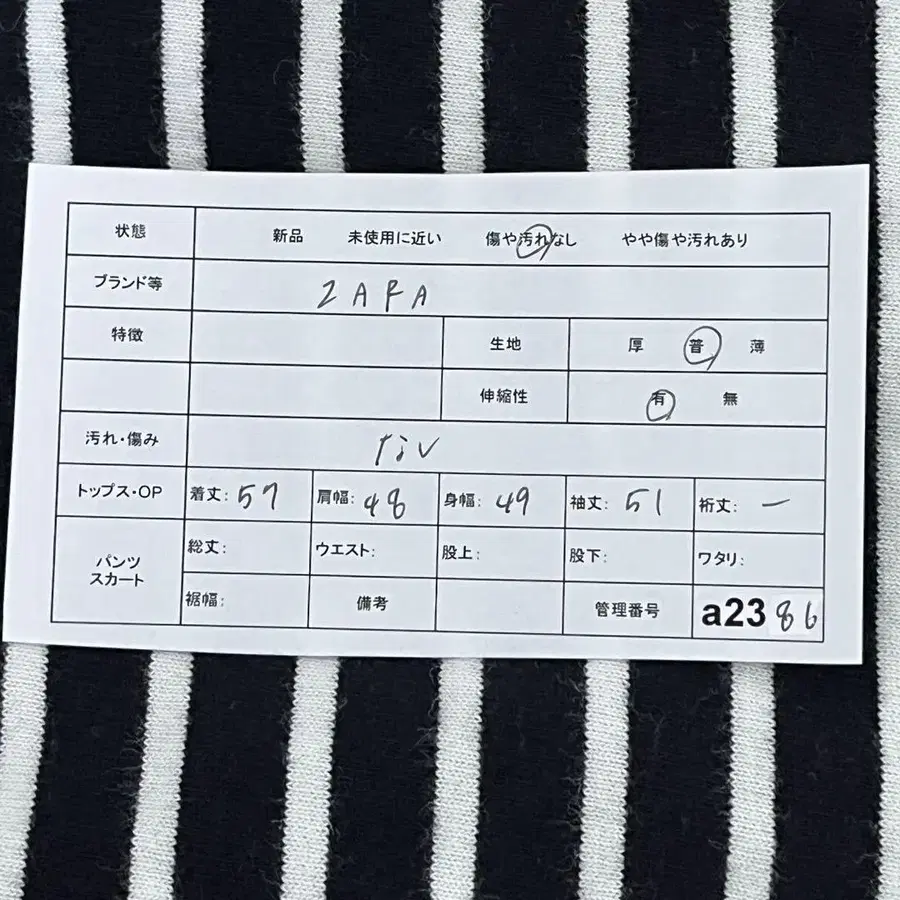 状態 新品 未使用に近い 傷や汚れなし やや傷や汚れあり
ブランド等 ZARA
特徴 生地 厚 普 薄
伸縮性 有 無
汚れ・傷み なし
トップス・OP 着丈: 57 肩幅: 48 身幅: 49 袖丈: 51 裄丈: ー
パンツ スカート 総丈: ウエスト: 股上: 股下: ワタリ:
裾幅: 備考 管理番号 a2386